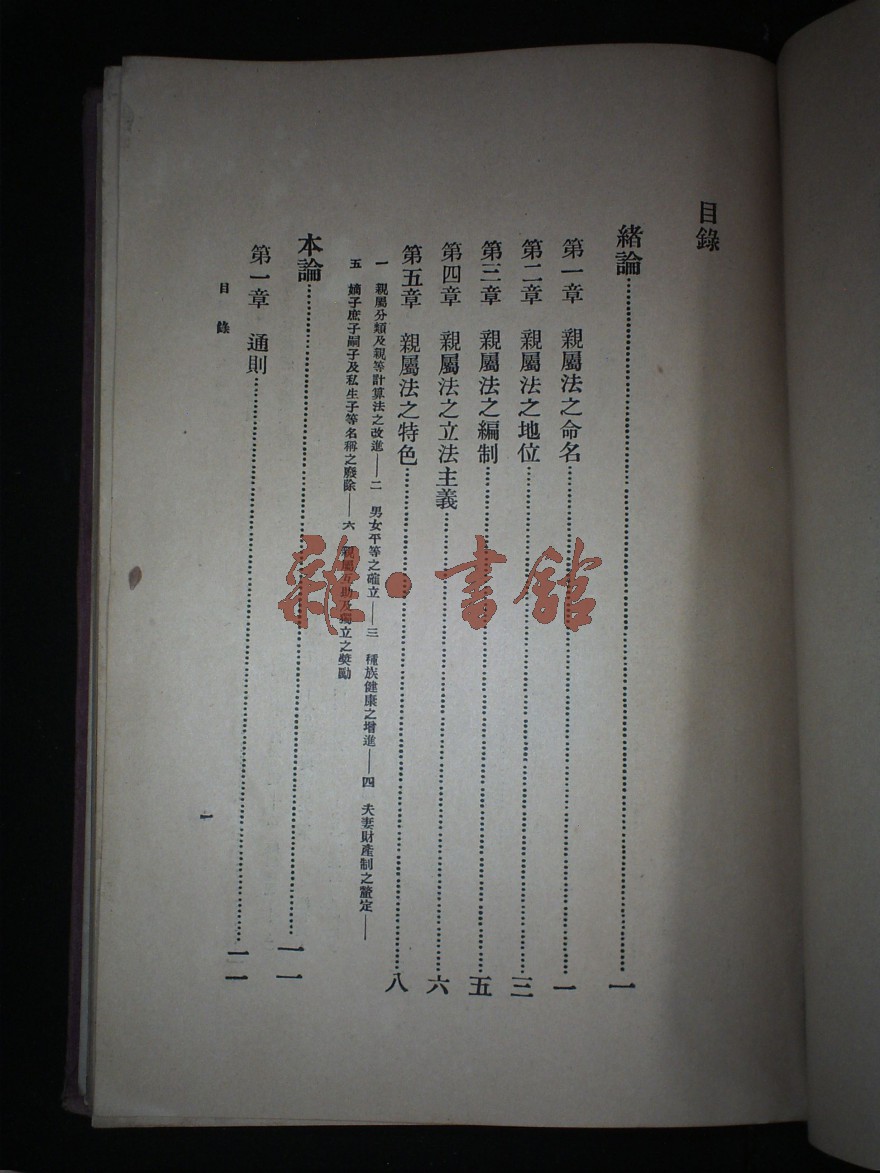 目錄
緒論……一
第一章　親屬法之命名……一
第二章　親屬法之地位……三
第三章　親屬法之編制……五
第四章　親屬法之立法主義……六
第五章　親屬法之特色……八
一　親屬分類及親等計算法之改進——二　男女平等之確立——三　種族健康之增進——四　夫妻財產制之釐定——
五　嫡子庶子嗣子及私生子等名稱之廢除——六　親屬互助及獨立之獎勵
本論……一一
第一章　通則……一一
目錄
一
雜·書館